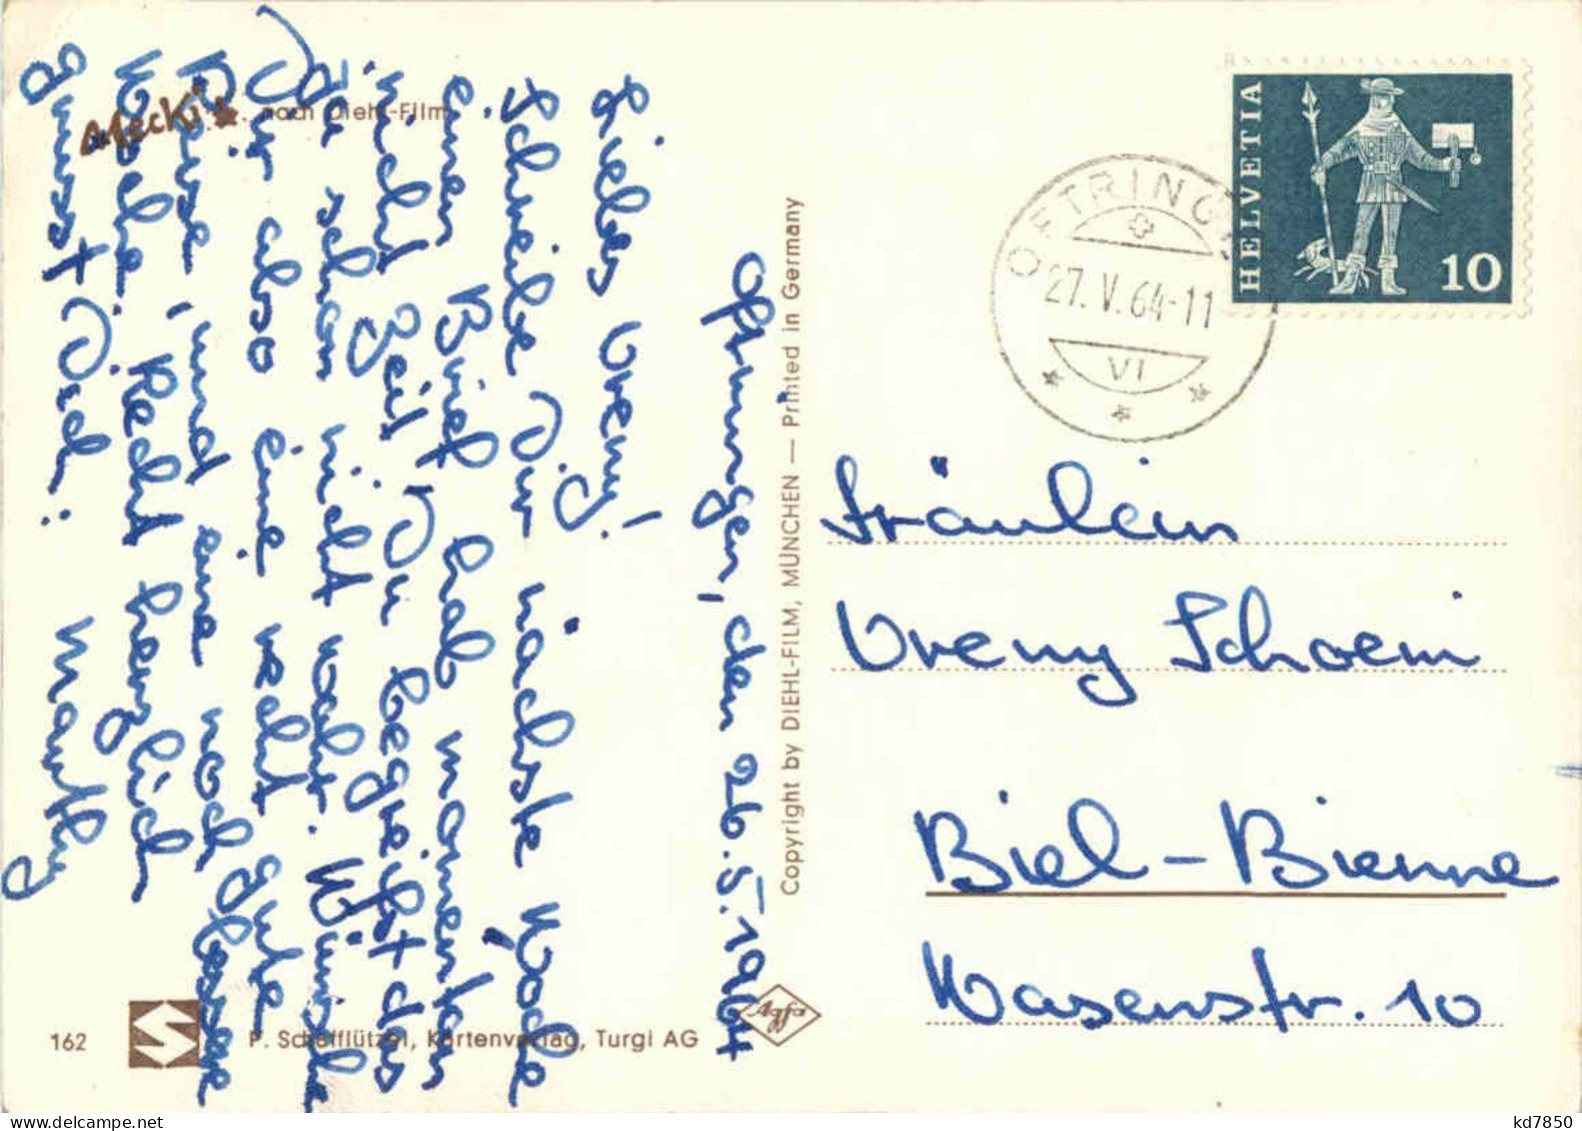 Mecki ★ nach Diehl-Film
Oftringen, den 26.5.1964
Liebes Vreny!
Schreibe Dir nächste Woche
einen Brief, hab momentan
nicht Zeit, Du begreifst das
ja schon nicht wahr. Wünsche
Dir also eine recht gute
Reise, und eine noch bessere
Woche. Recht herzlich
grüsst Dich:
Marthy
HELVETIA
10
OFTRINGEN
27.V.64-11
VI
Fräulein
Vreny Schoeni
Biel-Bienne
Wasenstr. 10
Copyright by DIEHL-FILM, MÜNCHEN — Printed in Germany
162
P. Schifflützel, Kartenverlag, Turgi AG
Agfa
kd7850